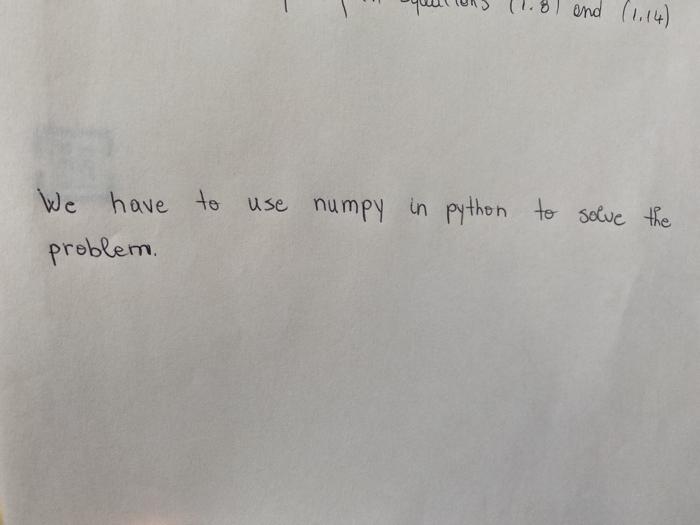 equations (1.8) and (1.14)
We have to use numpy in python to solve the
problem.